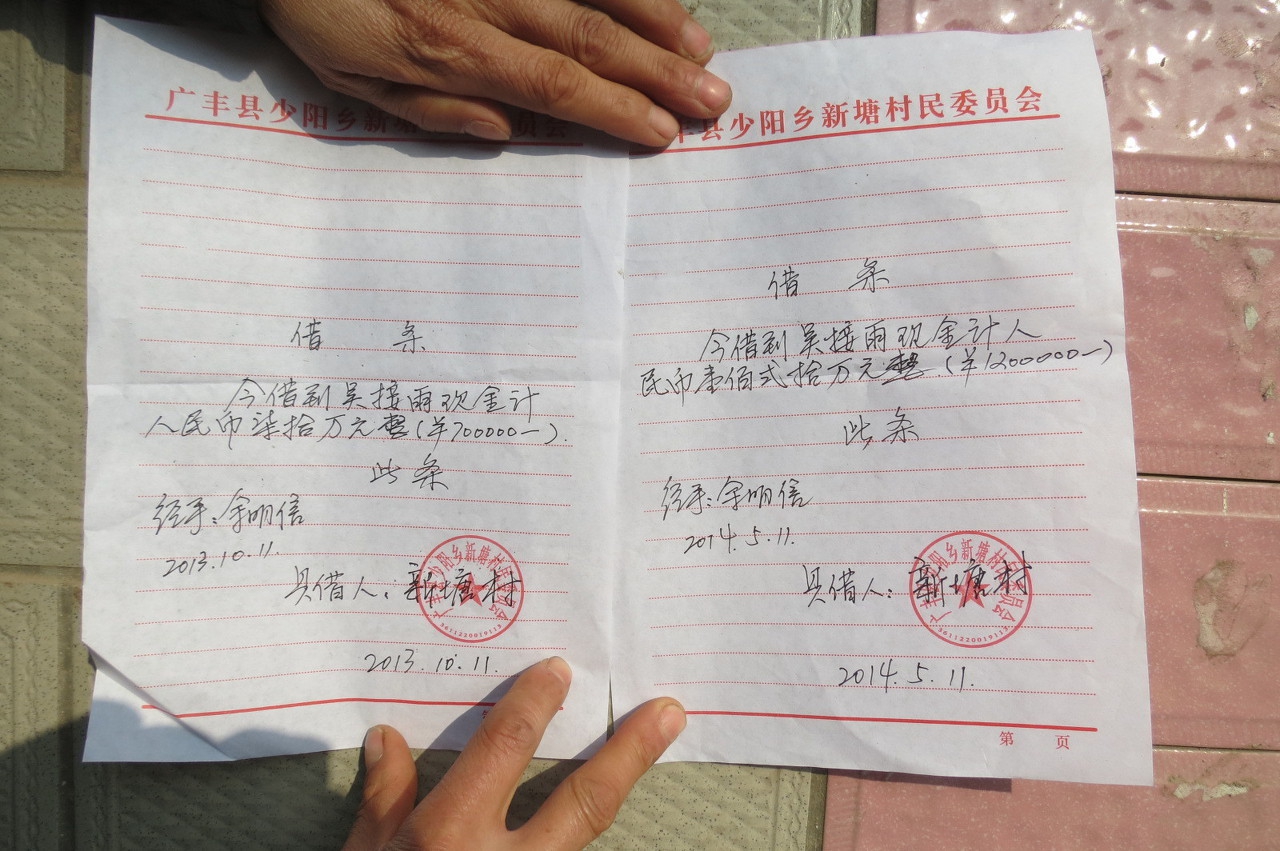 广丰县少阳乡新塘 员会
借 条
今借到吴接雨现金计
人民币柒拾万元整(¥700000一).
此条
经手:余明信
2013.10.11.
具借人:新塘村
3611220019113
2013.10.11.
丰县少阳乡新塘村民委员会
借 条
今借到吴接雨现金计人
民币壹佰弍拾万元整.(¥1200000一)
此条
经手:余明信
2014.5.11.
具借人:新塘村
3611220019113
2014.5.11.
第 页